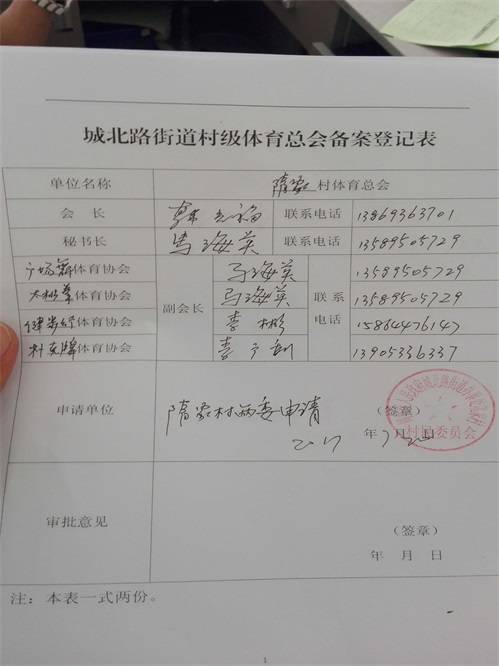 城北路街道村级体育总会备案登记表
单位名称 隋家村体育总会
会 长 联系电话 13869363701
秘书长 马海英 联系电话 13589505729
广场舞体育协会 副会长 马海英 联系电话 13589505729
太极拳体育协会 马海英 13589505729
体育协会 李彬 15864476147
扑克牌体育协会 李 13905336337
申请单位 隋家村两委申请 (签章)
2017 年 月
村民委员会
审批意见 (签章)
年 月 日
注：本表一式两份。
1